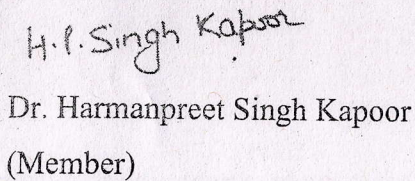 H.P. Singh Kapoor
Dr. Harmanpreet Singh Kapoor
(Member)